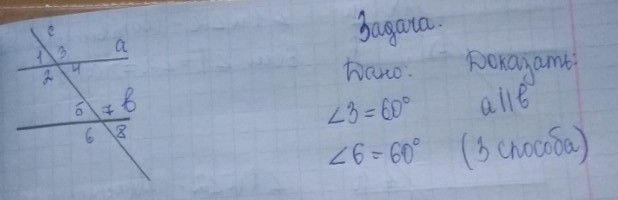 Задача.
Дано:
∠3 = 60°
∠6 = 60°
Доказать:
a || b
(3 способа)
c
1 3 a
2 4
5 7 b
6 8